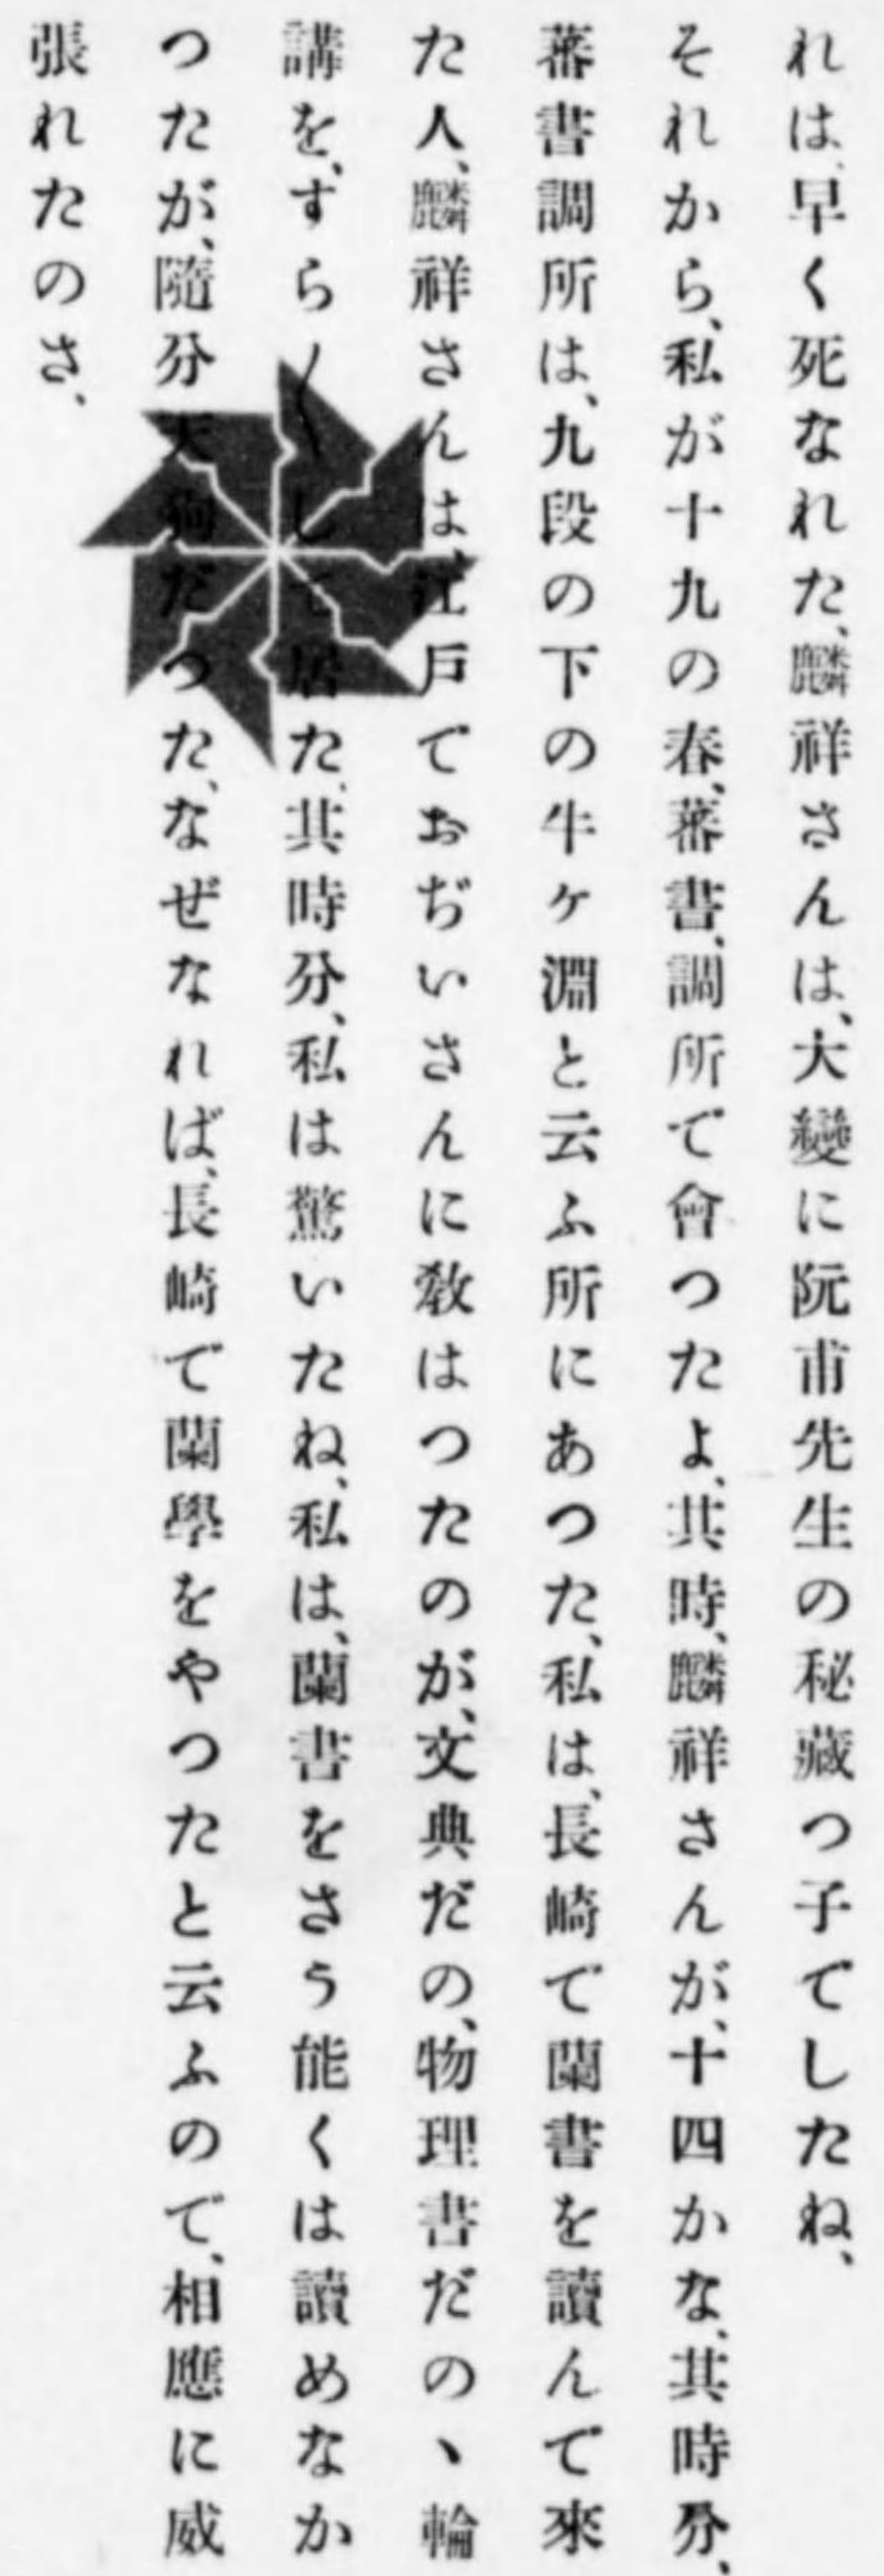 れは、早く死なれた、麟祥さんは、大變に阮甫先生の秘藏つ子でしたね、
それから、私が十九の春、蕃書、調所で會つたよ、其時、麟祥さんが、十四かな、其時分、
蕃書調所は、九段の下の牛ヶ淵と云ふ所にあつた、私は、長崎で蘭書を讀んで來
た人、麟祥さんは、江戸でおぢいさんに敎はつたのが、文典だの、物理書だの、輪
講を、すら〱して居た、其時分、私は驚いたね、私は、蘭書をさう能くは讀めなか
つたが、隨分天狗だつた、なぜなれば、長崎で蘭學をやつたと云ふので、相應に威
張れたのさ、